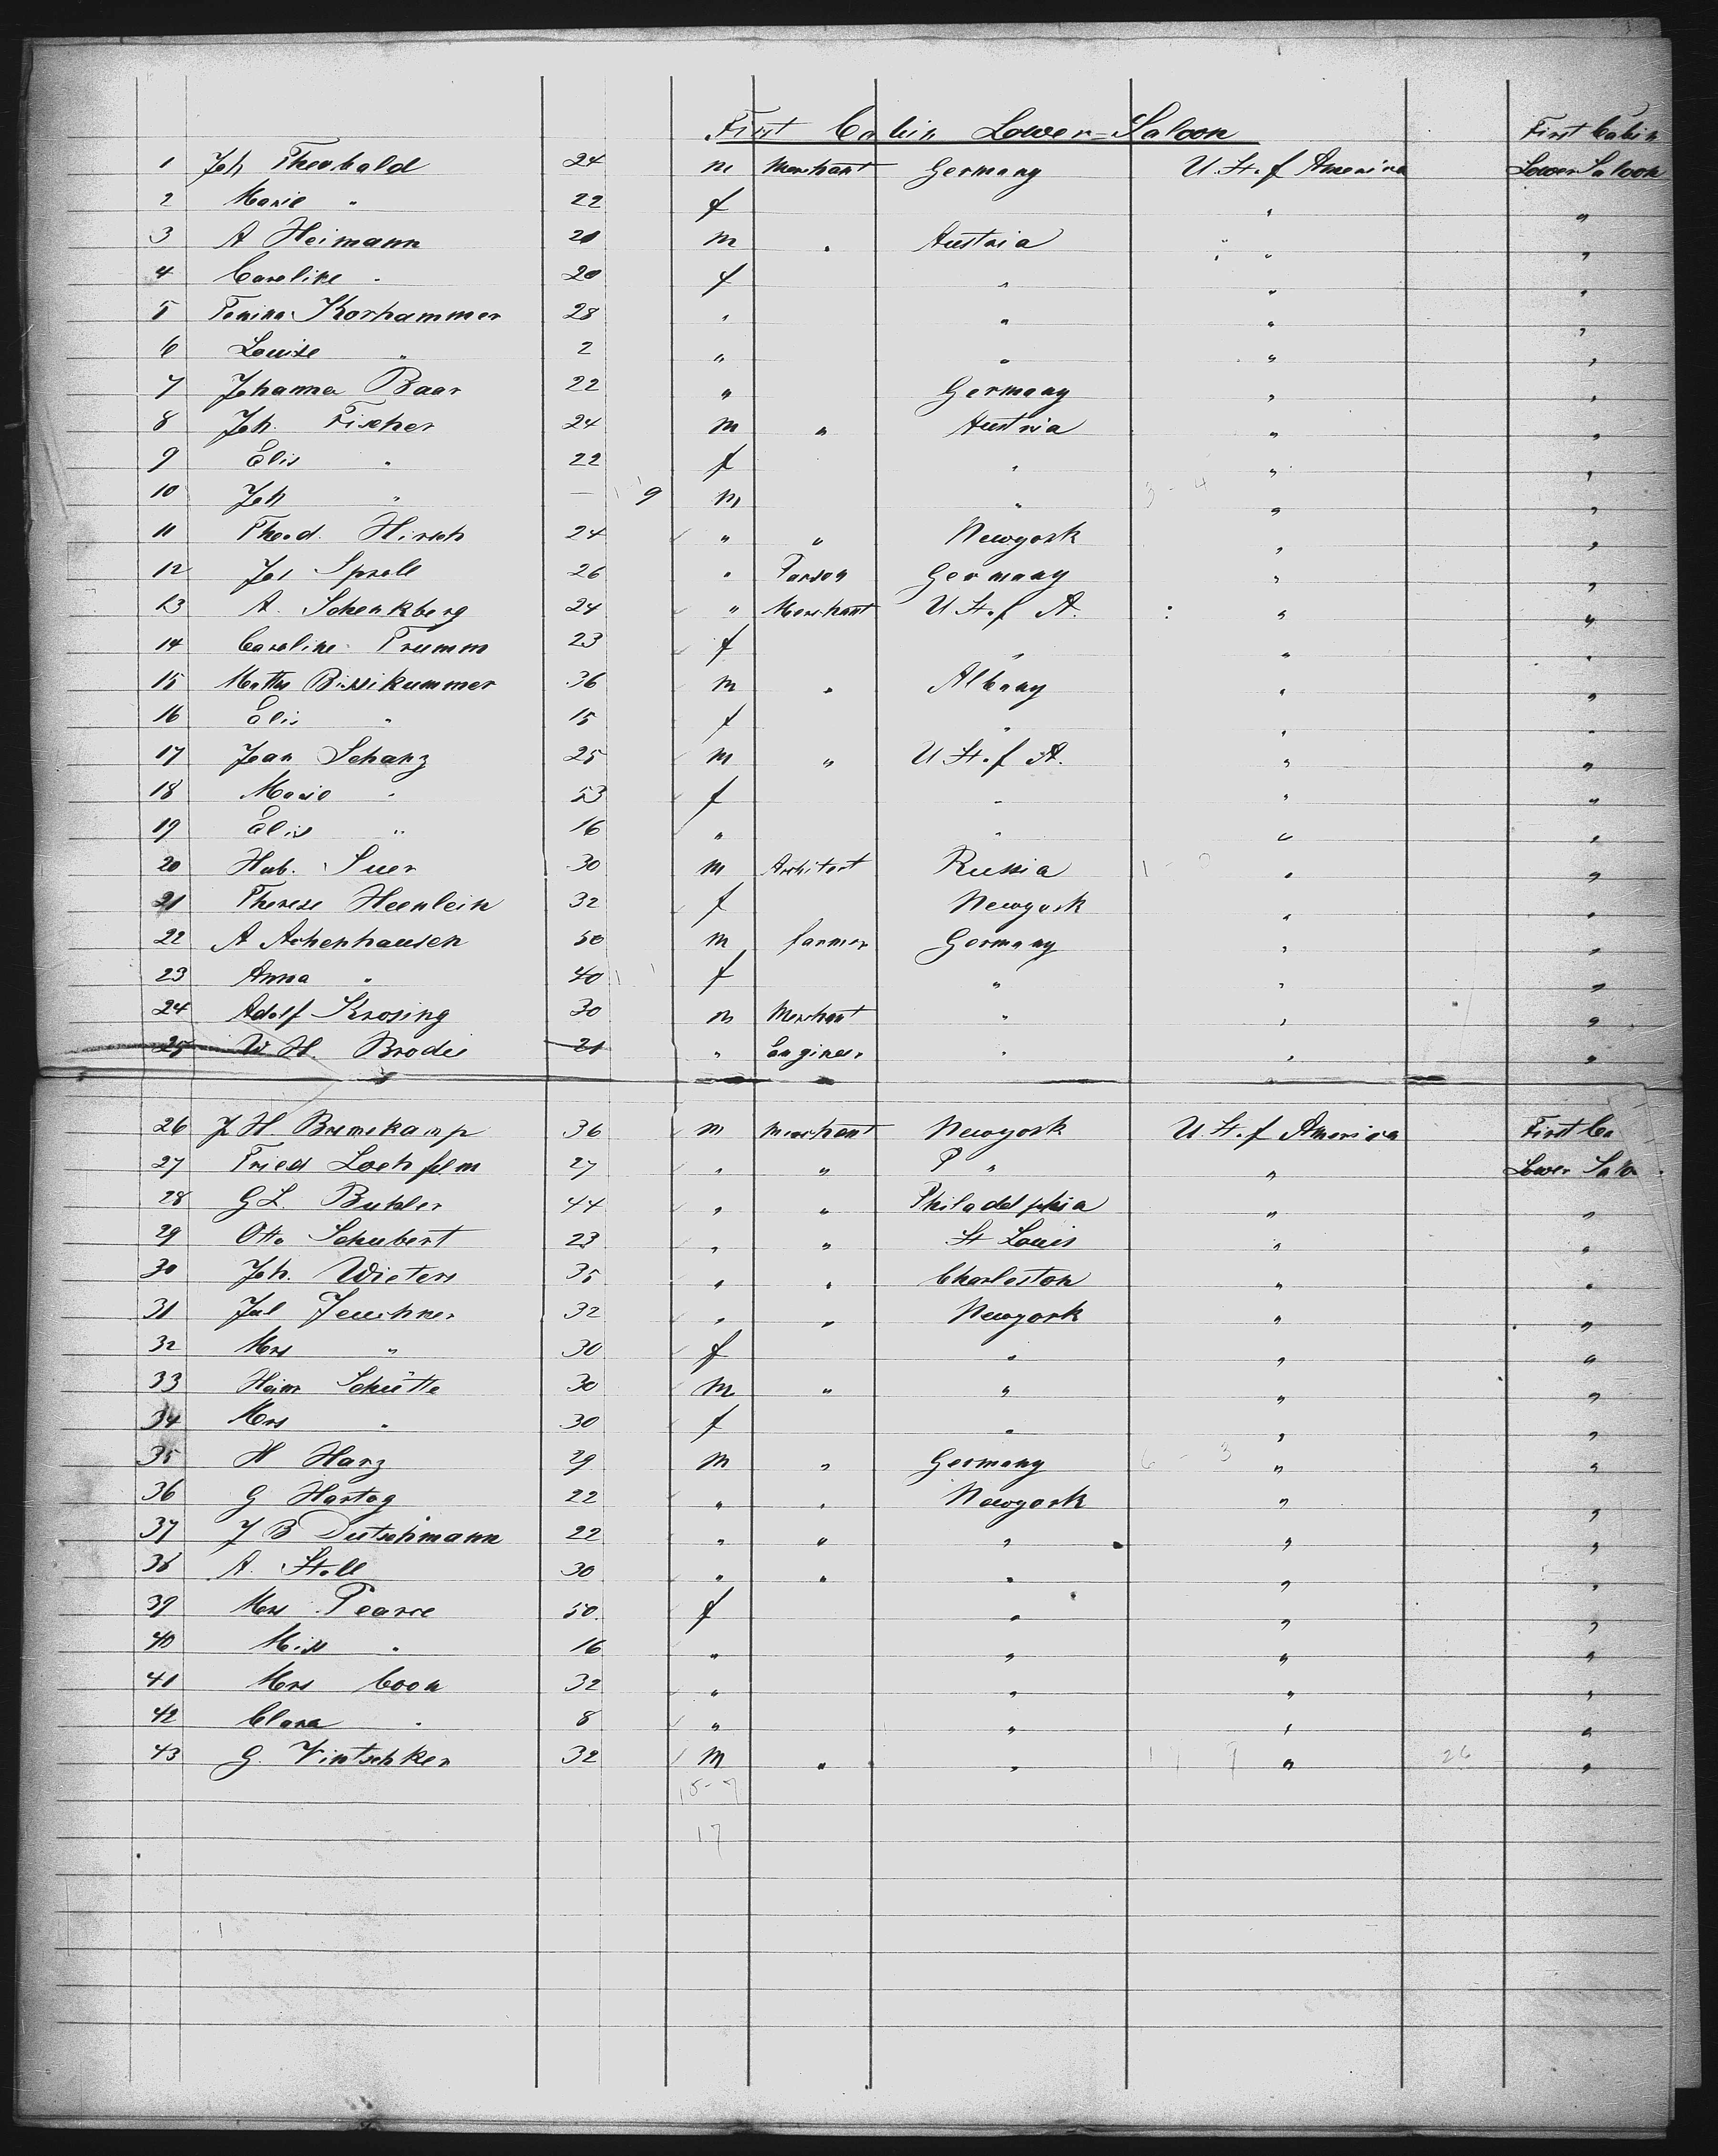 First Cabin Lower-Saloon First Cabin
1 Joh Theobald 24 m Merchant Germany U. St. of America Lower Saloon
2 Marie " 22 f " "
3 A Heimann 21 m " Austria " "
4 Caroline " 20 f " " "
5 Korhammer 28 " " " "
6 Louise " 2 " " " "
7 Johanna Baar 22 " Germany " "
8 Joh. Fischer 24 m " Austria " "
9 Elis " 22 f " " "
10 Joh " — 9 m " 3 - 4 " "
11 Theod. Hirsch 24 " " Newyork " "
12 Jos Sprell 26 " Parson Germany " "
13 A. Schenkberg 24 " Merchant U. St. of A. " "
14 Caroline Trumm 23 f " " "
15 Bissikummer 36 m " Albany " "
16 Elis " 15 f " " "
17 Jean Schanz 25 m " U. St. of A. " "
18 Marie " 53 f " " "
19 Elis " 16 " " " "
20 Hub. Suer 30 m Architect Russia " "
21 Therese Heenlein 32 f Newyork " "
22 A Achenhausen 50 m farmer Germany " "
23 Anna " 40 f " " "
24 Adolf Krosing 30 m Merchant " " "
25 W. H. Brodie 21 " Engineer " " "
26 J. H. Brunekamp 36 m Merchant Newyork U. St. of America First Ca
27 Fried 27 " " " " Lower Salo
28 G L. Buhler 44 " " Philadelphia " "
29 Otto Schubert 23 " " St Louis " "
30 Joh. Wieters 35 " " Charleston " "
31 Jul 32 " " Newyork " "
32 Mrs " 30 f " " "
33 Heinr Schütte 30 m " " " "
34 Mrs " 30 f " " "
35 H Harz 29 m " Germany 6 - 3 " "
36 G Hartog 22 " " Newyork " "
37 J B Dutschmann 22 " " " " "
38 A. Stoll 30 " " " " "
39 Mrs Pearce 50 f " " "
40 Miss " 16 " " " "
41 Mrs Coon 32 " " " "
42 Clara " 8 " " " "
43 G. Vintschker 32 m " " " 26 "
17